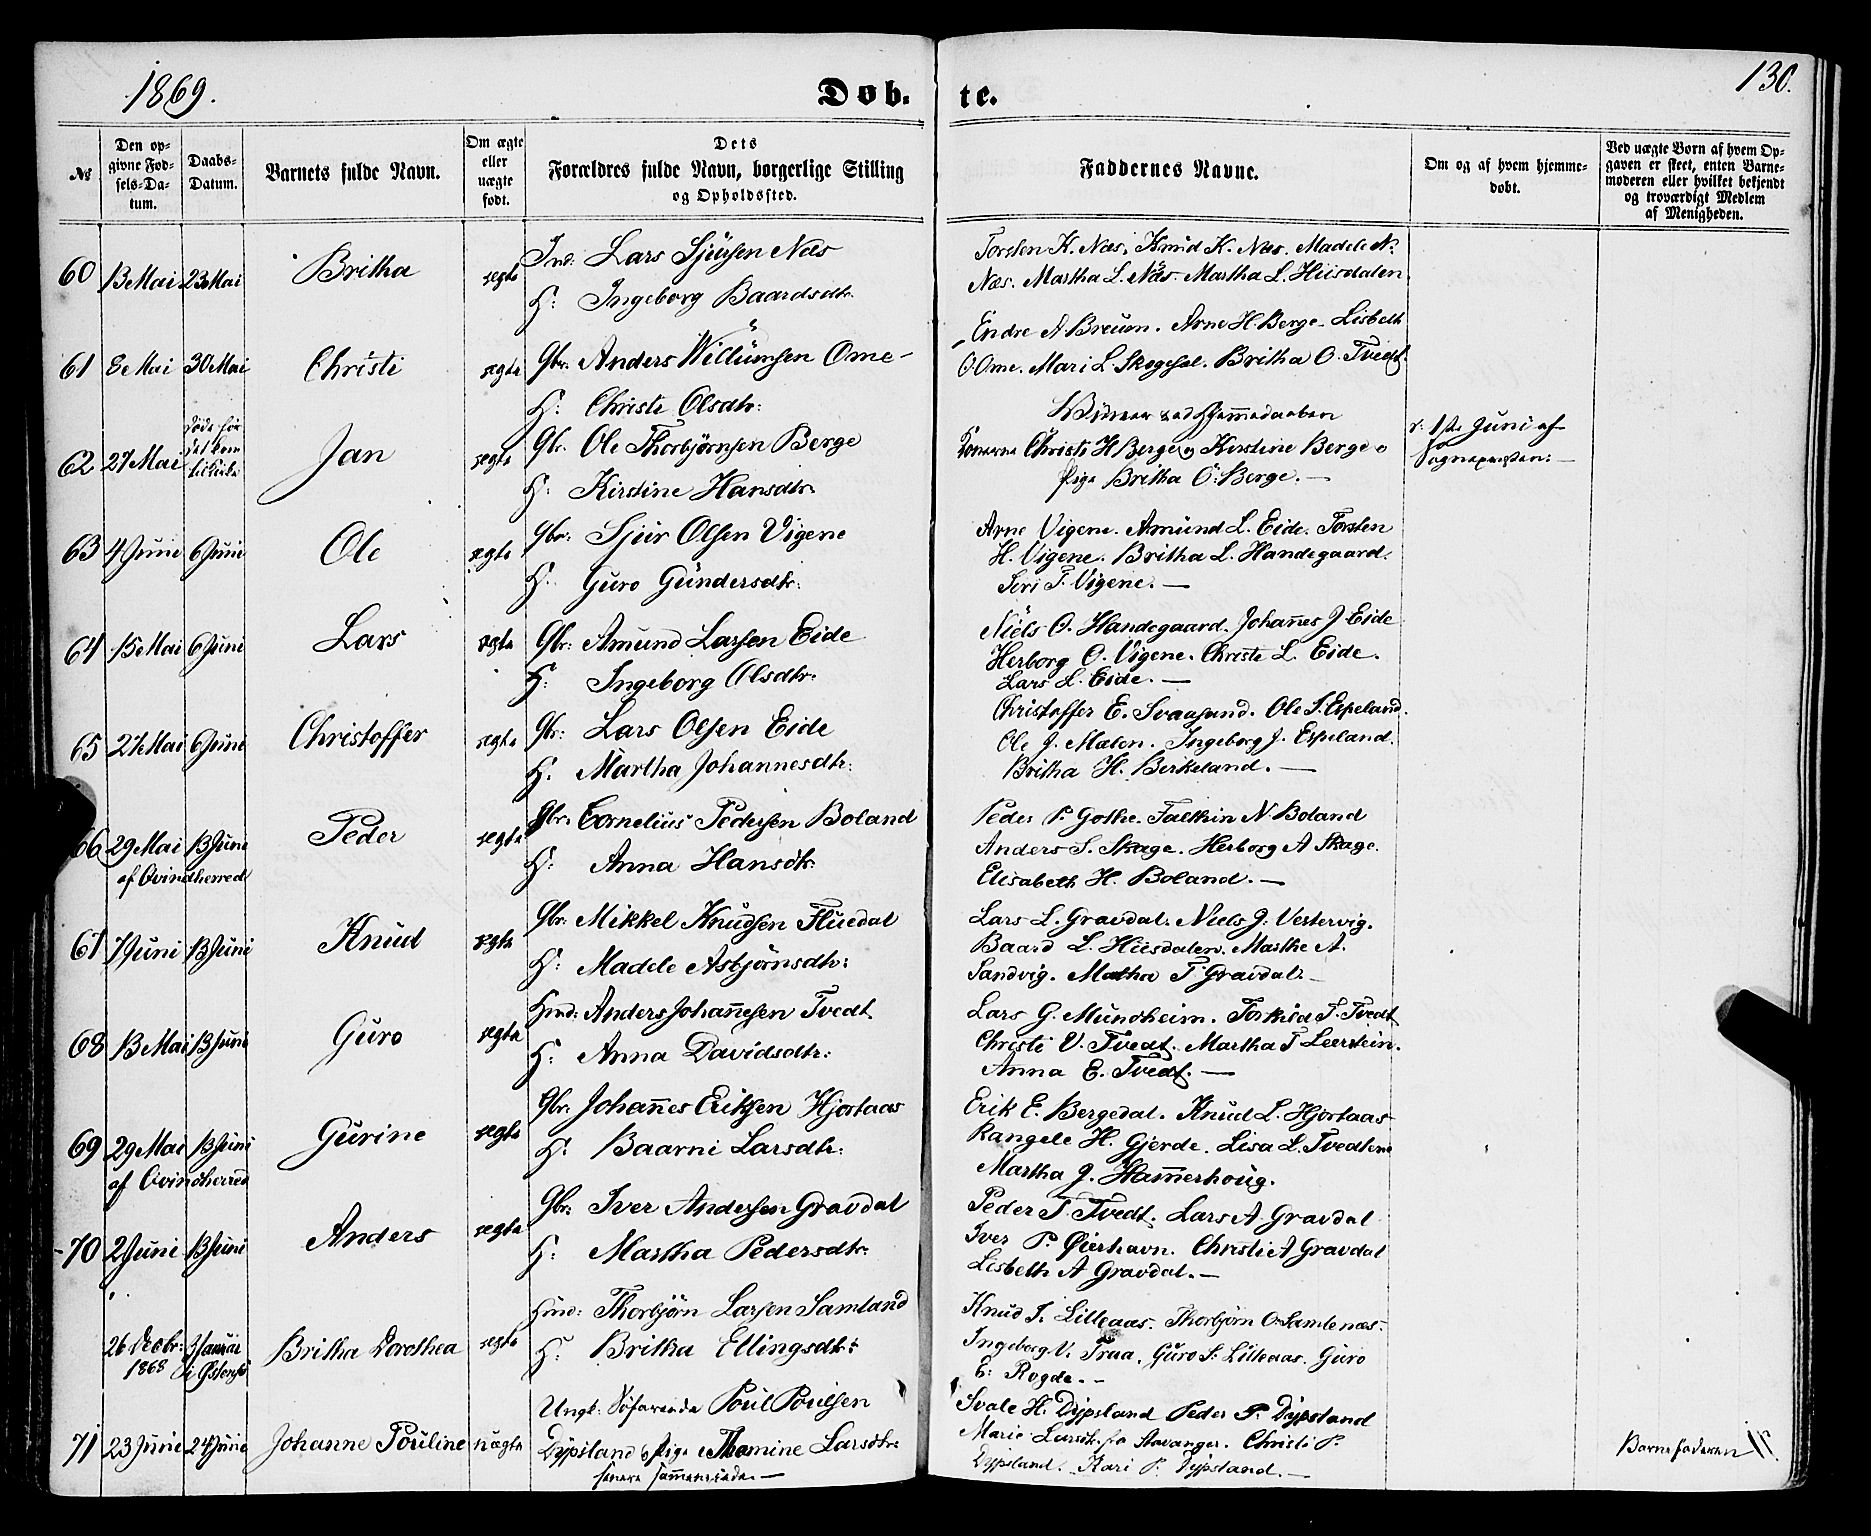 1869.
Døb-
te.
130.
№
Den op-
givne Fød-
sels-Da-
tum.
Daabs-
Datum.
Barnets fulde Navn.
Om ægte
eller
uægte
født.
Dets
Forældres fulde Navn, borgerlige Stilling
og Opholdssted.
Faddernes Navne.
Om og af hvem hjemme-
døbt.
Ved uægte Børn af hvem Op-
gaven er skeet, enten Barne-
moderen eller hvilket bekjendt
og troværdigt Medlem
af Menigheden.
60 13 Mai 23 Mai Britha ægte
Ind: Lars Sjursen Næs
H: Ingeborg Baardsdtr.
Torsten K. Næs. Knud K. Næs. Madele N.
Næs. Martha L. Næs. Martha L. Hiisdalen.
61 8 Mai 30 Mai Christi ægte
Gbr: Anders Willumsen Ome
H: Christi Olsdtr:
Endre A Breum. Arne H. Berge. Lisbeth
O Ome. Mari L Skogesal. Britha O. Tvedt.
62 27 Mai døde før det kom til Kirke Jan ægte
Gbr. Ole Thorbjørnsen Berge
H: Kirstine Hansdtr.
Vidner ved Hjemmedaaben
Konerne Christi H Berge og Kirstine Berge o
Pige Britha O. Berge.
1ste Juni af
Sognepresten:
63 4 Juni 6 Juni Ole ægte
Gbr: Sjur Olsen Vigene
H: Guro Gundersdtr:
Arne Vigene. Amund L. Eide. Torsten
H. Vigene. Britha L. Handegaard.
Siri T. Vigene.
64 15 Mai 6 Juni Lars ægte
Gbr: Amund Larsen Eide
H: Ingeborg Olsdtr:
Niels O. Handegaard. Johañes J Eide
Herborg O. Vigene. Christi L. Eide.
Lars L. Eide.
65 27 Mai 6 Juni Christoffer ægte
Gbr: Lars Olsen Eide
H. Martha Johannesdtr:
Christoffer E. Svaasand. Ole S. Espeland.
Ole J. Malen. Ingeborg J. Espeland.
Britha H. Berkeland.
66 29 Mai 13 Juni Peder ægte
af Qvindherred
Gbr: Cornelius Pedersen Boland
H: Anna Hansdtr.
Peder P. Gothe. Falthin N. Boland
Anders S. Skage. Herborg A Skage.
Elisabeth H. Boland.
67 7 Juni 13 Juni Knud ægte
Gbr: Mikkel Knudsen Fluedal
H: Madele Asbjørnsdtr:
Lars L. Gravdal. Niels J. Vestervig.
Baard L. Hiisdalen. Marthe A.
Sandvig. Matha T Gravdal.
68 13 Mai 13 Juni Guro ægte
Hmd: Anders Johañesen Tvedt
H: Anna Davidsdtr:
Lars G. Mundheim. Torkild T. Tvedt
Christi V. Tvedt. Martha T Leerstein.
Anna E. Tvedt.
69 29 Mai 13 Juni Gurine ægte
af Qvindherred
Gbr: Johañes Eriksen Hjortaas
H: Baarni Larsdtr:
Erik E. Bergedal. Knud L. Hjortaas
Rangele H. Gjerde. Lisa L. Tvedtene
Martha J. Hamerhoug.
70 2 Juni 13 Juni Anders ægte
Gbr: Iver Andersen Gravdal
H: Martha Pedersdtr:
Peder T. Tvedt. Lars A Gravdal
Iver P. Øierhavn. Christi A Gravdal
Lisbeth A Gravdal.
26 Decbr: 1868 3 Januar i Østensø Britha Dorothea ægte
Hmd: Thorbjørn Larsen Samland
H: Britha Ellingsdtr:
Knud T. Lilleaas. Thorbjørn O. Samlenæs.
Ingeborg V. Traa. Guro S. Lilleaas. Guro
E. Rogde.
71 23 Juni 24 Juni Johanne Pouline uægte
Ungk: Søfarende Poul Poulsen
Dypsland o Pige Thomine Larsdtr
senere sammenviede
Svale H. Dypsland Peder P. Dypsland
Marie Larsdtr. fra Stavanger. Christi P.
Dypsland. Kari P. Dypsland.
Barnefaderen